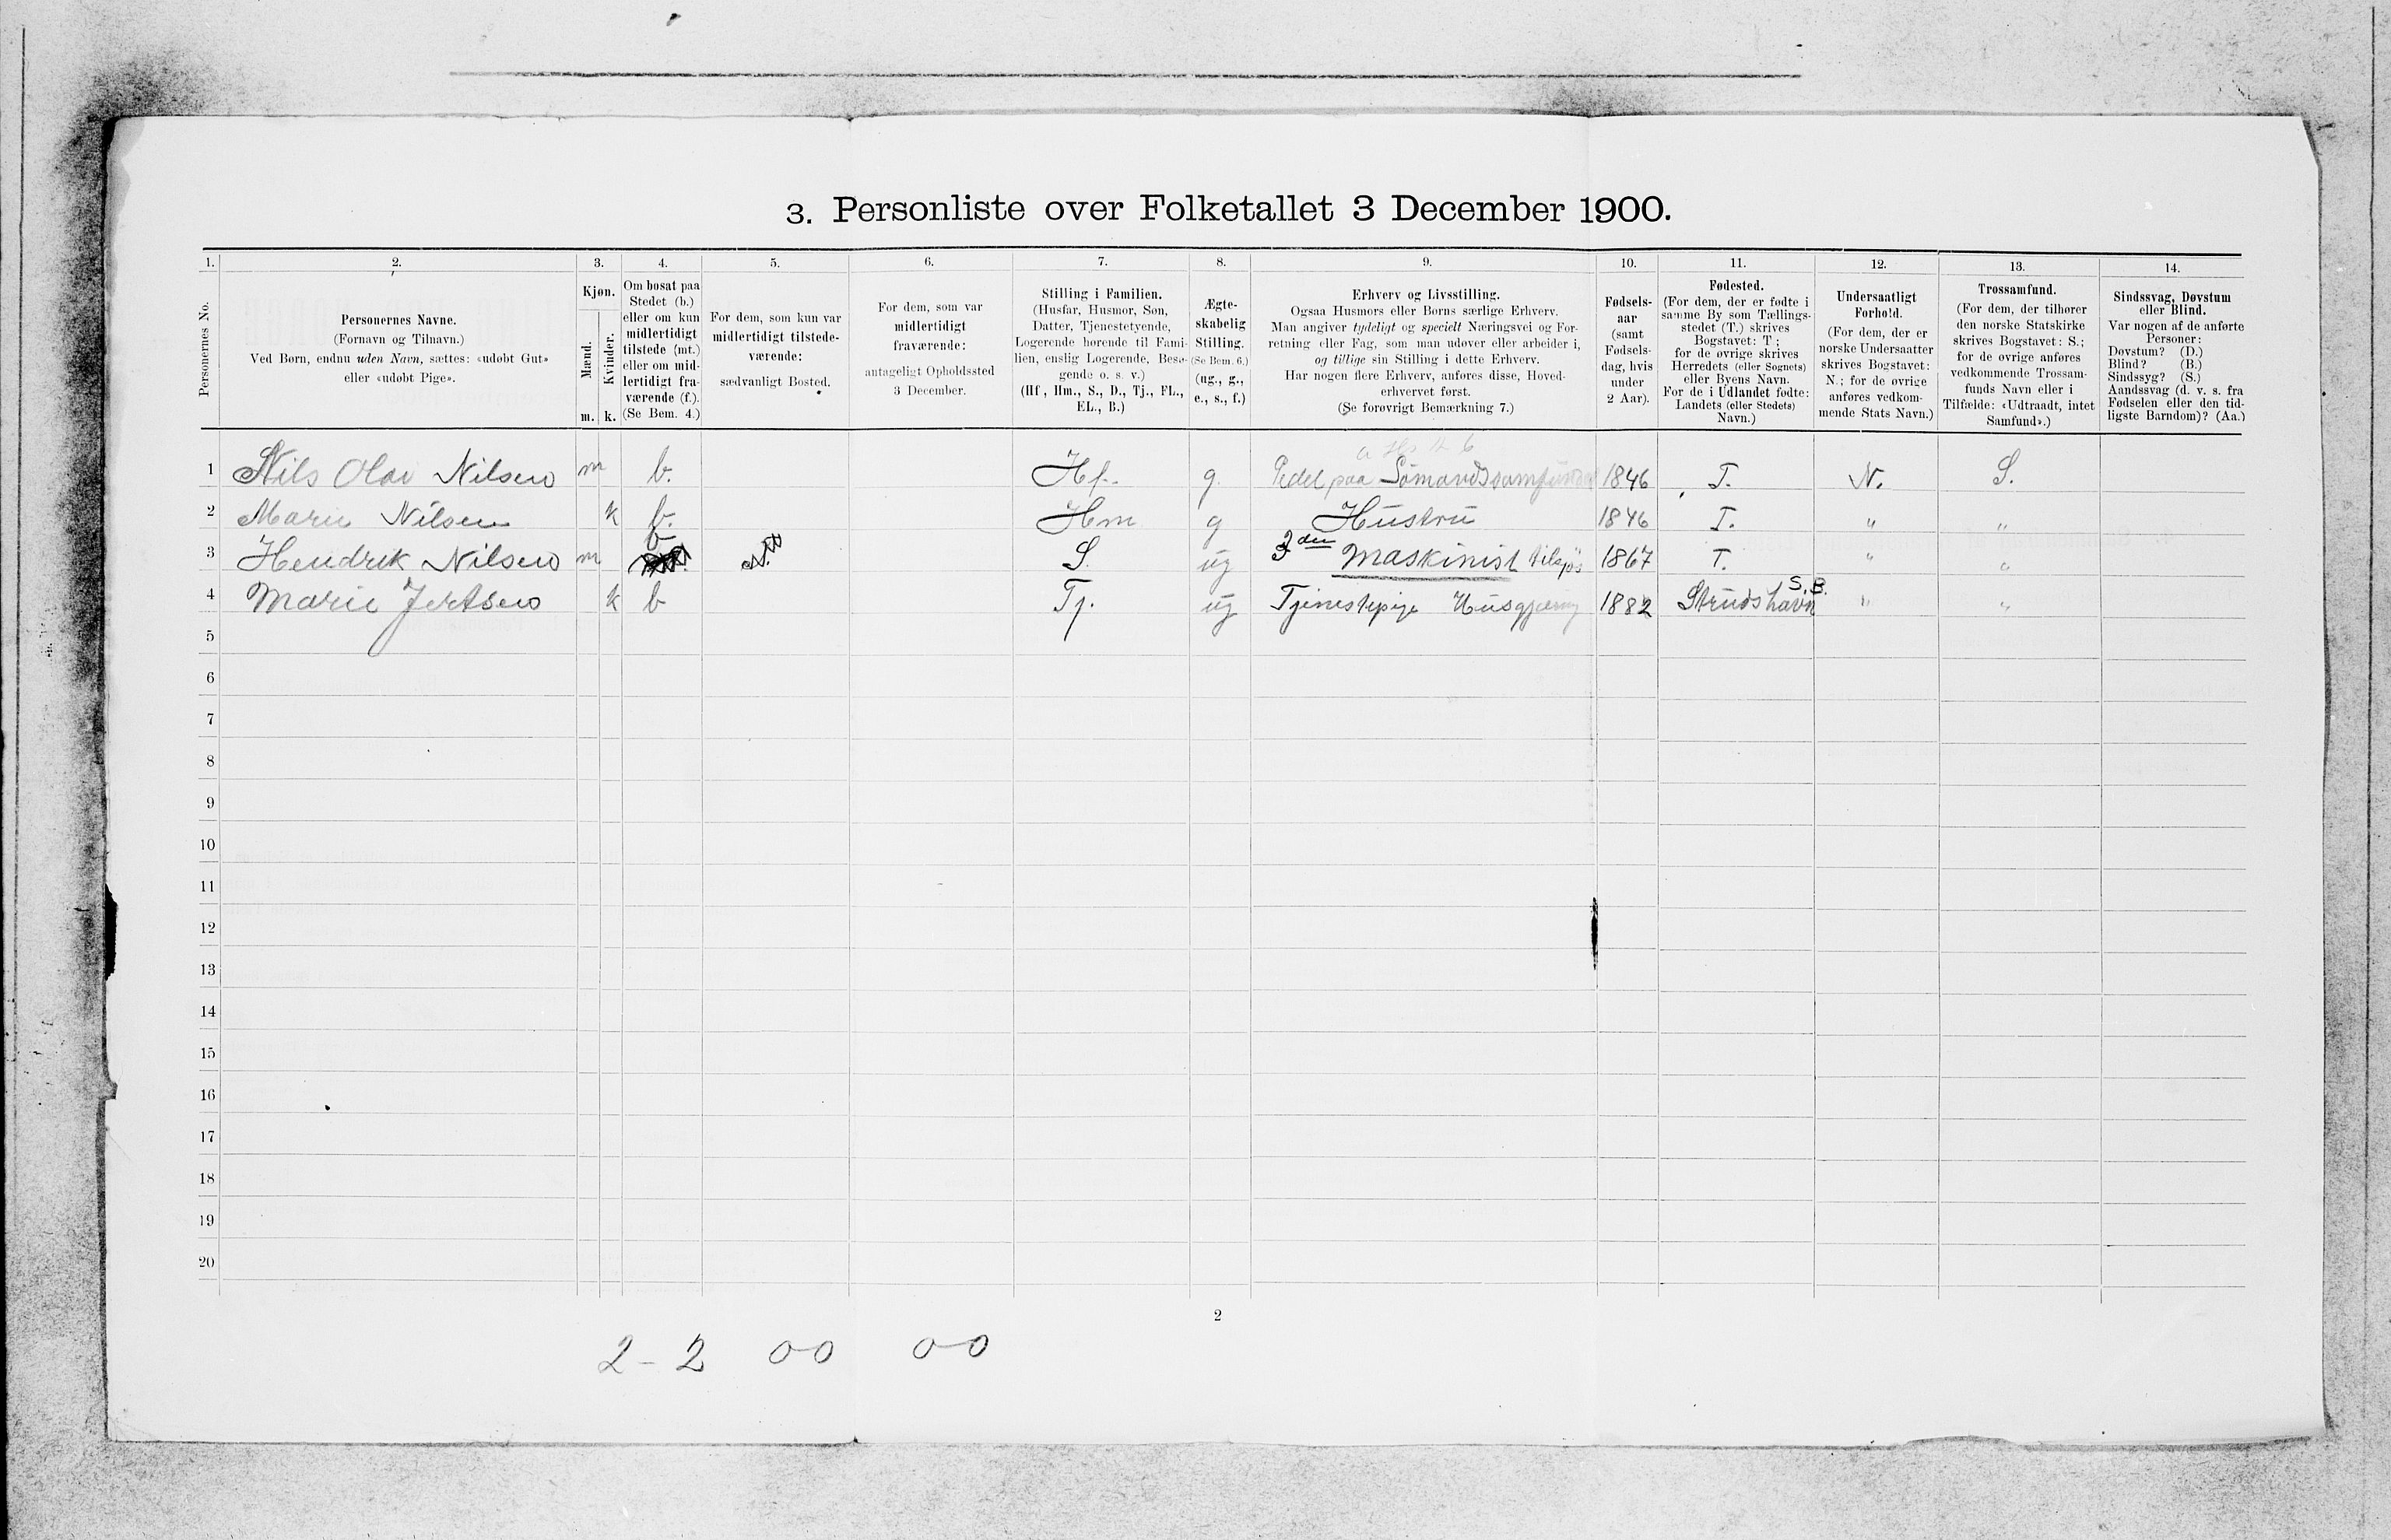 3. Personliste over Folketallet 3 December 1900.
1. 2. 3. 4. 5. 6. 7. 8. 9. 10. 11. 12. 13. 14.
Personernes No.
Personernes Navne.
(Fornavn og Tilnavn.)
Ved Børn, endnu uden Navn, sættes: «udøbt Gut»
eller «udøbt Pige».
Kjøn.
Mænd.
Kvinder.
m. k.
Om bosat paa
Stedet (b.)
eller om kun
midlertidigt
tilstede (mt.)
eller om mid-
lertidigt fra-
værende (f.).
(Se Bem. 4.)
For dem, som kun var
midlertidigt tilstede-
værende:
sædvanligt Bosted.
For dem, som var
midlertidigt
fraværende:
antageligt Opholdssted
3 December.
Stilling i Familien.
(Husfar, Husmor, Søn,
Datter, Tjenestetyende,
Logerende hørende til Fami-
lien, enslig Logerende, Besø-
gende o. s. v.)
(Hf., Hm., S., D., Tj., FL.,
EL., B.)
Ægte-
skabelig
Stilling.
(Se Bem. 6.)
(ug., g.,
e., s., f.)
Erhverv og Livsstilling.
Ogsaa Husmors eller Børns særlige Erhverv.
Man angiver tydeligt og specielt Næringsvei og For-
retning eller Fag, som man udøver eller arbeider i,
og tillige sin Stilling i dette Erhverv.
Har nogen flere Erhverv, anføres disse, Hoved-
erhvervet først.
(Se forøvrigt Bemærkning 7.)
Fødsels-
aar
(samt
Fødsels-
dag, hvis
under
2 Aar).
Fødested.
(For dem, der er fødte i
samme By som Tællings-
stedet (T.) skrives
Bogstavet: T;
for de øvrige skrives
Herredets (eller Sognets)
eller Byens Navn.
For de i Udlandet fødte:
Landets (eller Stedets)
Navn.)
Undersaatligt
Forhold.
(For dem, der er
norske Undersaatter
skrives Bogstavet:
N.; for de øvrige
anføres vedkom-
mende Stats Navn.)
Trossamfund.
(For dem, der tilhører
den norske Statskirke
skrives Bogstavet: S.;
for de øvrige anføres
vedkommende Trossam-
funds Navn eller i
Tilfælde: «Udtraadt, intet
Samfund».)
Sindssvag, Døvstum
eller Blind.
Var nogen af de anførte
Personer:
Døvstum? (D.)
Blind? (B.)
Sindssyg? (S.)
Aandssvag (d. v. s. fra
Fødselen eller den tid-
ligste Barndom)? (Aa.)
1 Nils Olav Nilsen m b. Hf. g. Pedel paa Sömandssamfundet 1846 T. N. S.
2 Marie Nilsen k b. Hm g Hustru 1846 T. " "
3 Hendrik Nilsen m b S. ug 3den Maskinist tilsjös 1867 T. " "
4 Marie Jertsen k b Tj. ug Tjenestepige Husgjerning 1882 Strudshavn S. B. " "
5
6
7
8
9
10
11
12
13
14
15
16
17
18
19
20
2
2 - 2 0-0 0-0